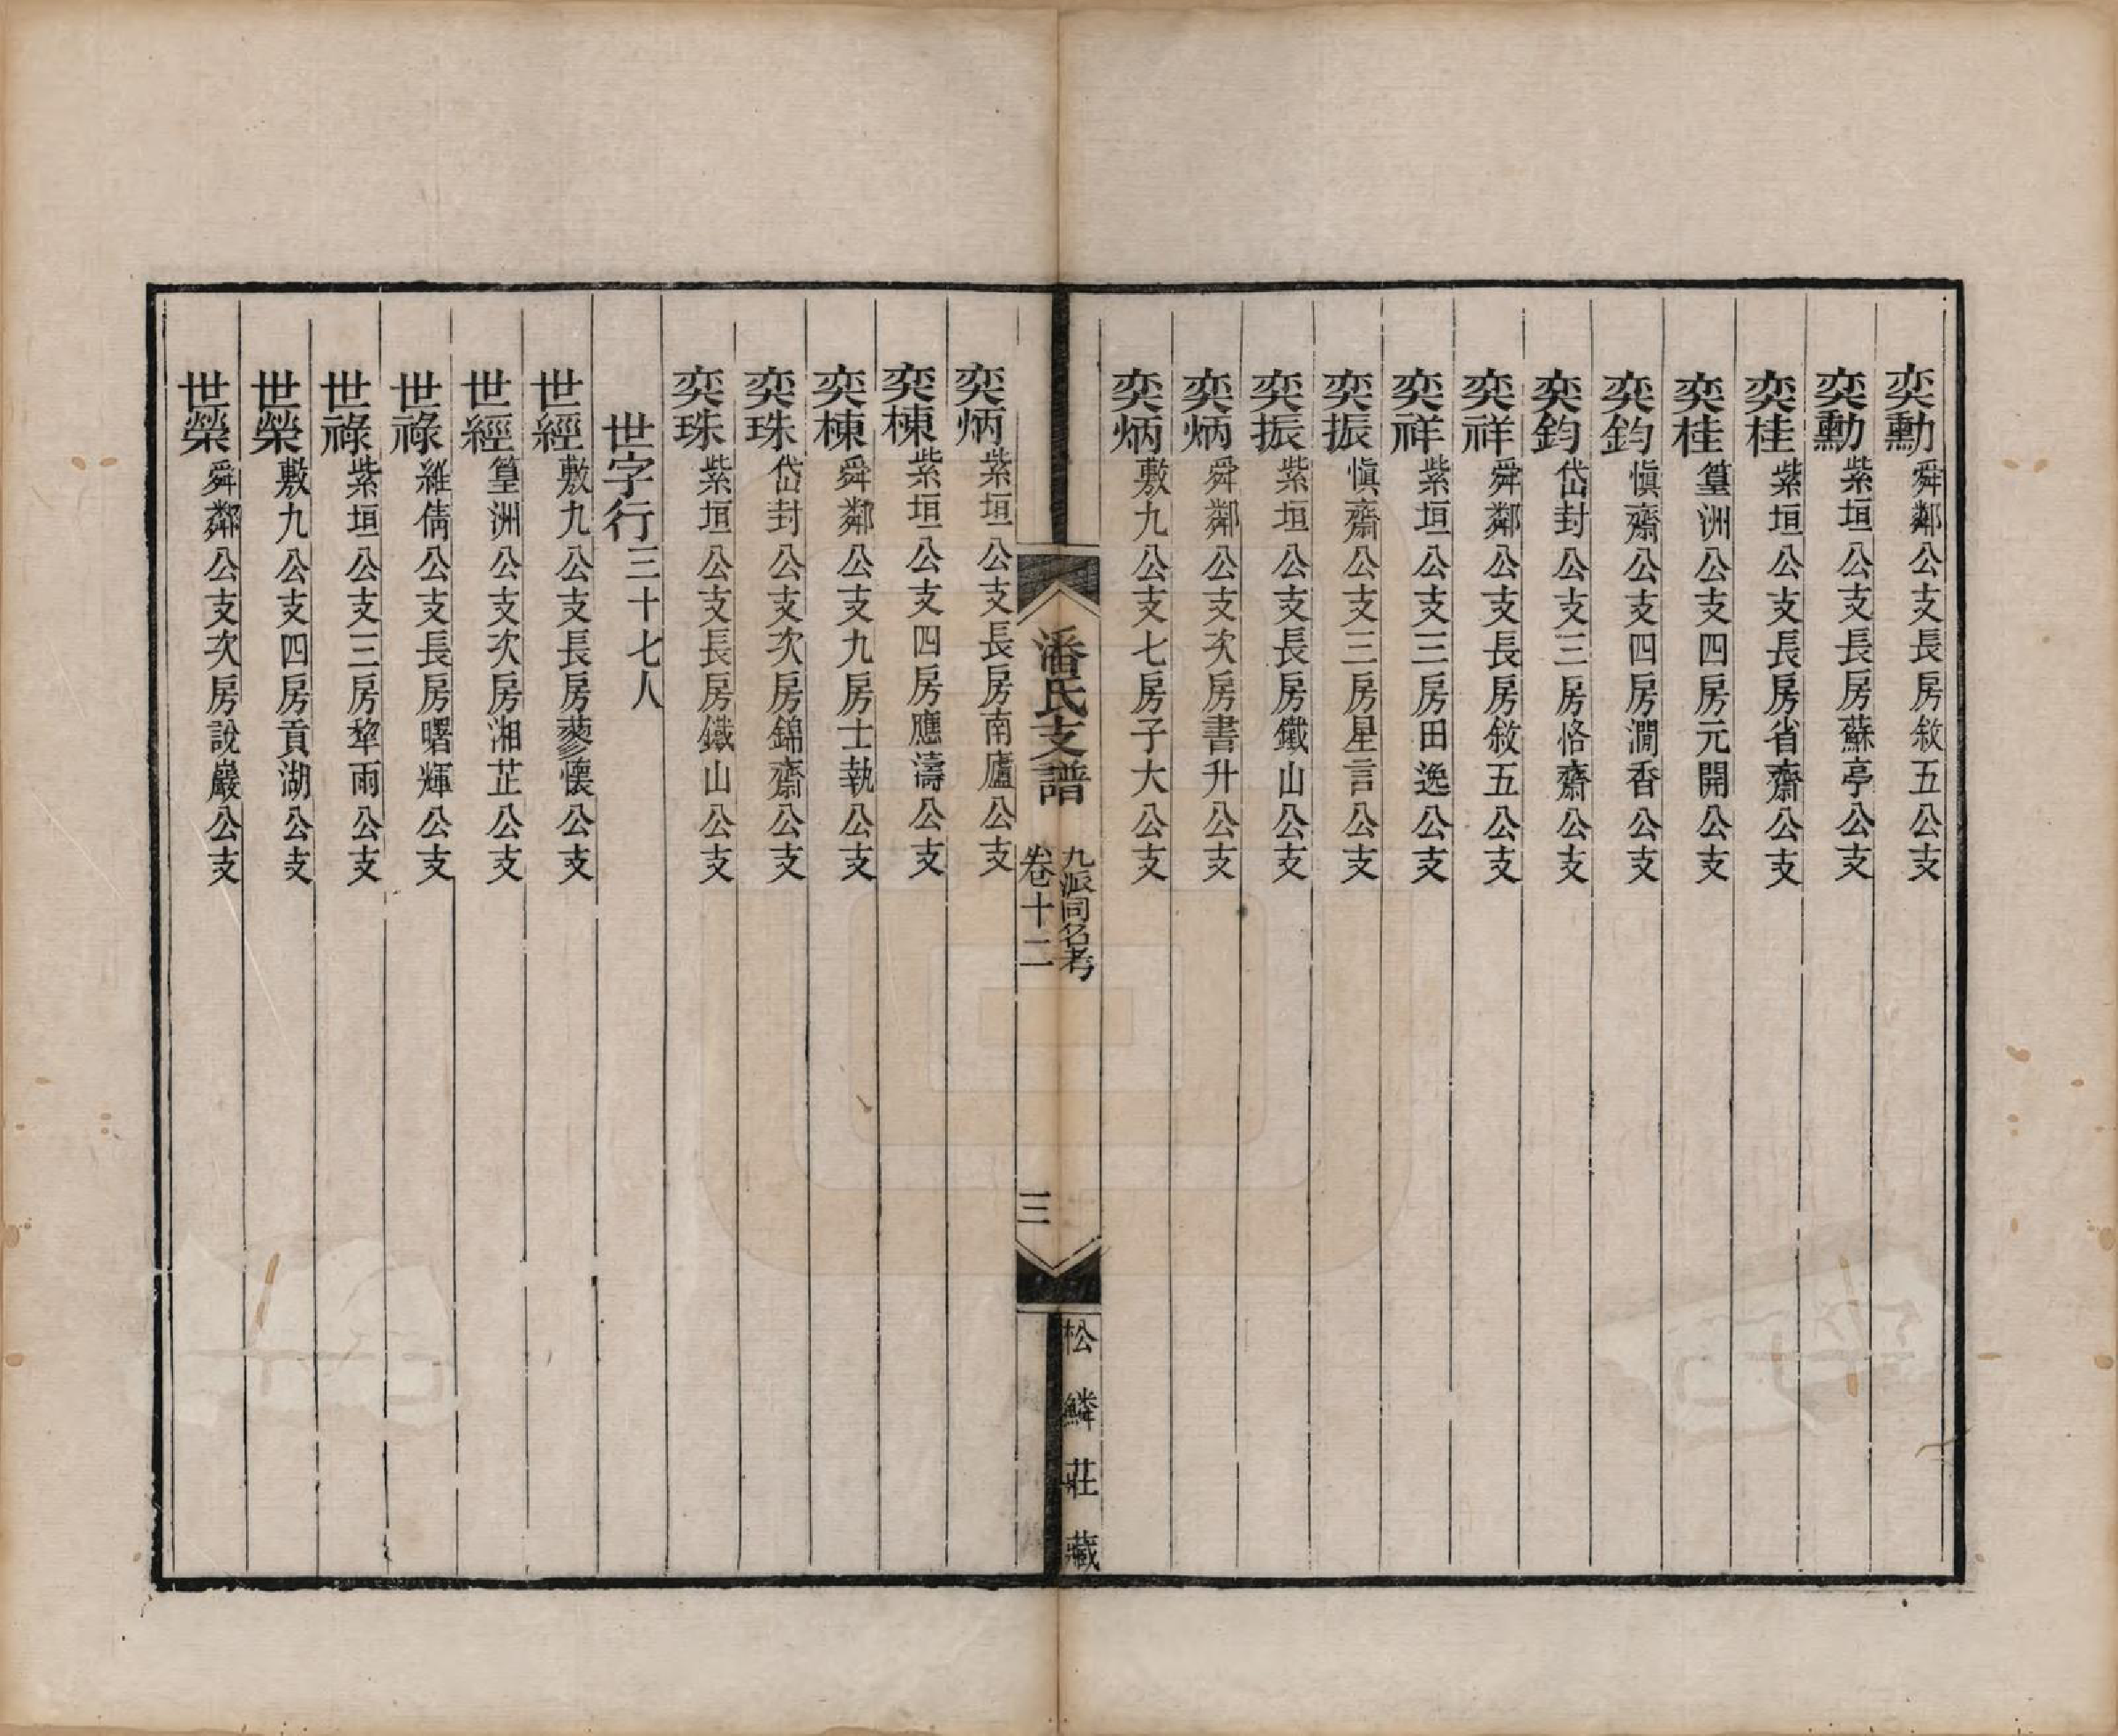 奕勳舜鄰公支長房敘五公支
奕勳紫垣公支長房蘇亭公支
奕桂紫垣公支長房省齋公支
奕桂篁洲公支四房元開公支
奕鈞愼齋公支四房澗香公支
奕鈞岱封公支三房恪齋公支
奕祥舜鄰公支長房敘五公支
奕祥紫垣公支三房田逸公支
奕振愼齋公支三房星言公支
奕振紫垣公支長房鐵山公支
奕炳舜鄰公支次房書升公支
奕炳敷九公支七房子大公支
潘氏支譜
九派同名考
卷十二
三
松鱗莊藏
奕炳紫垣公支長房南廬公支
奕棟紫垣公支四房應濤公支
奕棟舜鄰公支九房士執公支
奕珠岱封公支次房錦齋公支
奕珠紫垣公支長房鐵山公支
世字行三十七人
世經敷九公支長房蓼懷公支
世經篁洲公支次房湘芷公支
世祿維倩公支長房曙輝公支
世祿紫垣公支三房犂雨公支
世榮敷九公支四房貢湖公支
世榮舜鄰公支次房說巖公支